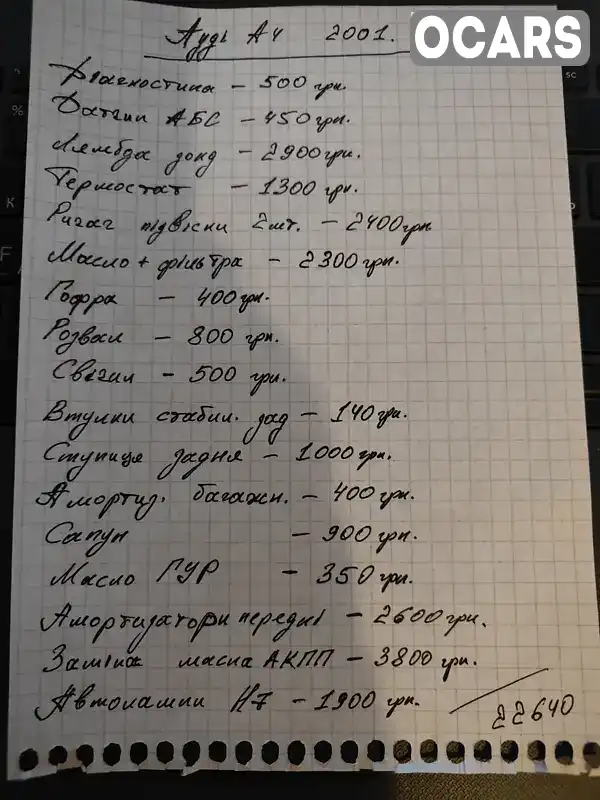 Ауді А4 2001.
OCARS
Діагностика – 500 грн.
Датчик АБС – 450 грн.
Лямбда зонд – 2900 грн.
Термостат – 1300 грн.
Ричаг підвіски 2 шт. – 2400 грн
Масло + фільтра – 2300 грн.
Гофра – 400 грн.
Розвал – 800 грн.
Свічки – 500 грн.
Втулки стабил. зад – 140 грн.
Ступиця задня – 1000 грн.
Амортиз. багажн. – 400 грн.
Сапун – 900 грн.
Масло ГУР – 350 грн.
Амортизатори передні – 2600 грн.
Заміна масла АКПП – 3800 грн.
Автолампи H7 – 1900 грн.
22640